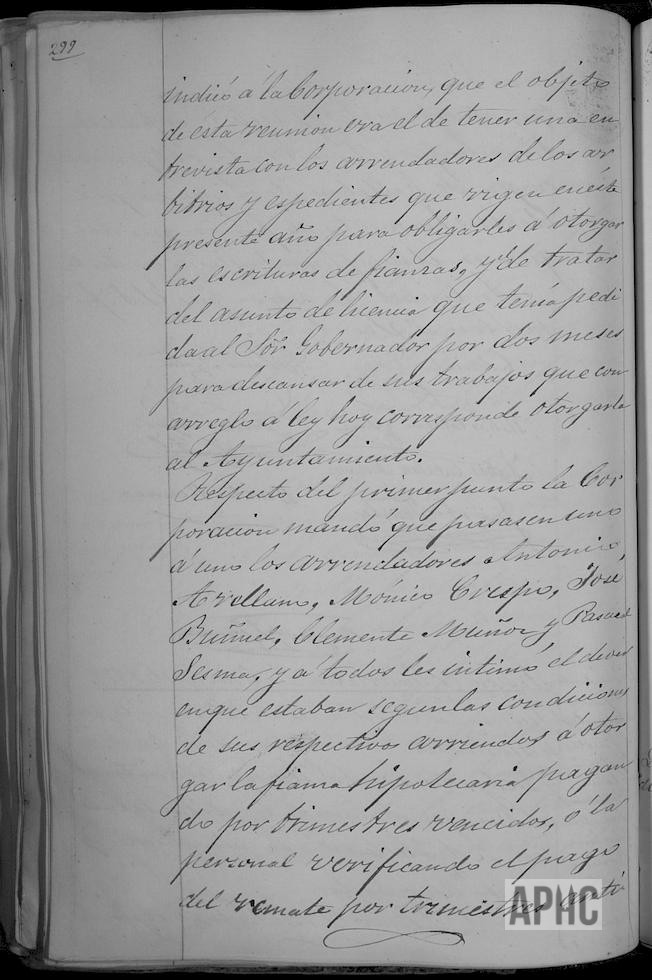 299
indicó á la Corporacion, que el objeto
de ésta reunion era el de tener una en
trevista con los arrendadores de los ar
bitrios y espedientes que rigen en éste
presente año para obligarles á otorgar
las escrituras de fianzas, y de tratar
del asunto de licencia que tenía pedi
da al Sõr Gobernador por dos meses
para descansar de sus trabajos que con
arreglo á ley hoy corresponde otorgarla
al Ayuntamiento.
Respecto del primer punto la Cor
poracion mandó que pasasen uno
á uno los arrendadores Antonio
Arellano, Mónico Crespo, José
Buñuel, Clemente Muñoz y Pascual
Sesma, y a todos les intimó el deber
en que estaban segun las condiciones
de sus respectivos arriendos á otor
gar la fianza hipotecaria pagan
do por trimestres vencidos, ó la
personal verificando el pago
del remate por trimestres anti
APHC